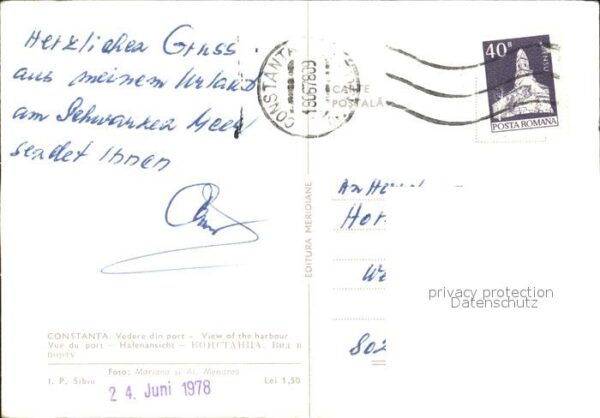 Herzlichen Gruss
aus meinem Urlaub
am Schwarzen Meer
sendet Ihnen
CONSTANȚA
19067809
CARTE
POSTALĂ
40B
POSTA ROMANA
An Her
Hor
We
802
privacy protection
Datenschutz
EDITURA MERIDIANE
CONSTANȚA. Vedere din port - View of the harbour
Vue du port - Hafenansicht - КОНСТАНЦА. Вид в
порту
Foto: Mariana și Al. Mendrea
I. P. Sibiu
Lei 1,50
24. Juni 1978